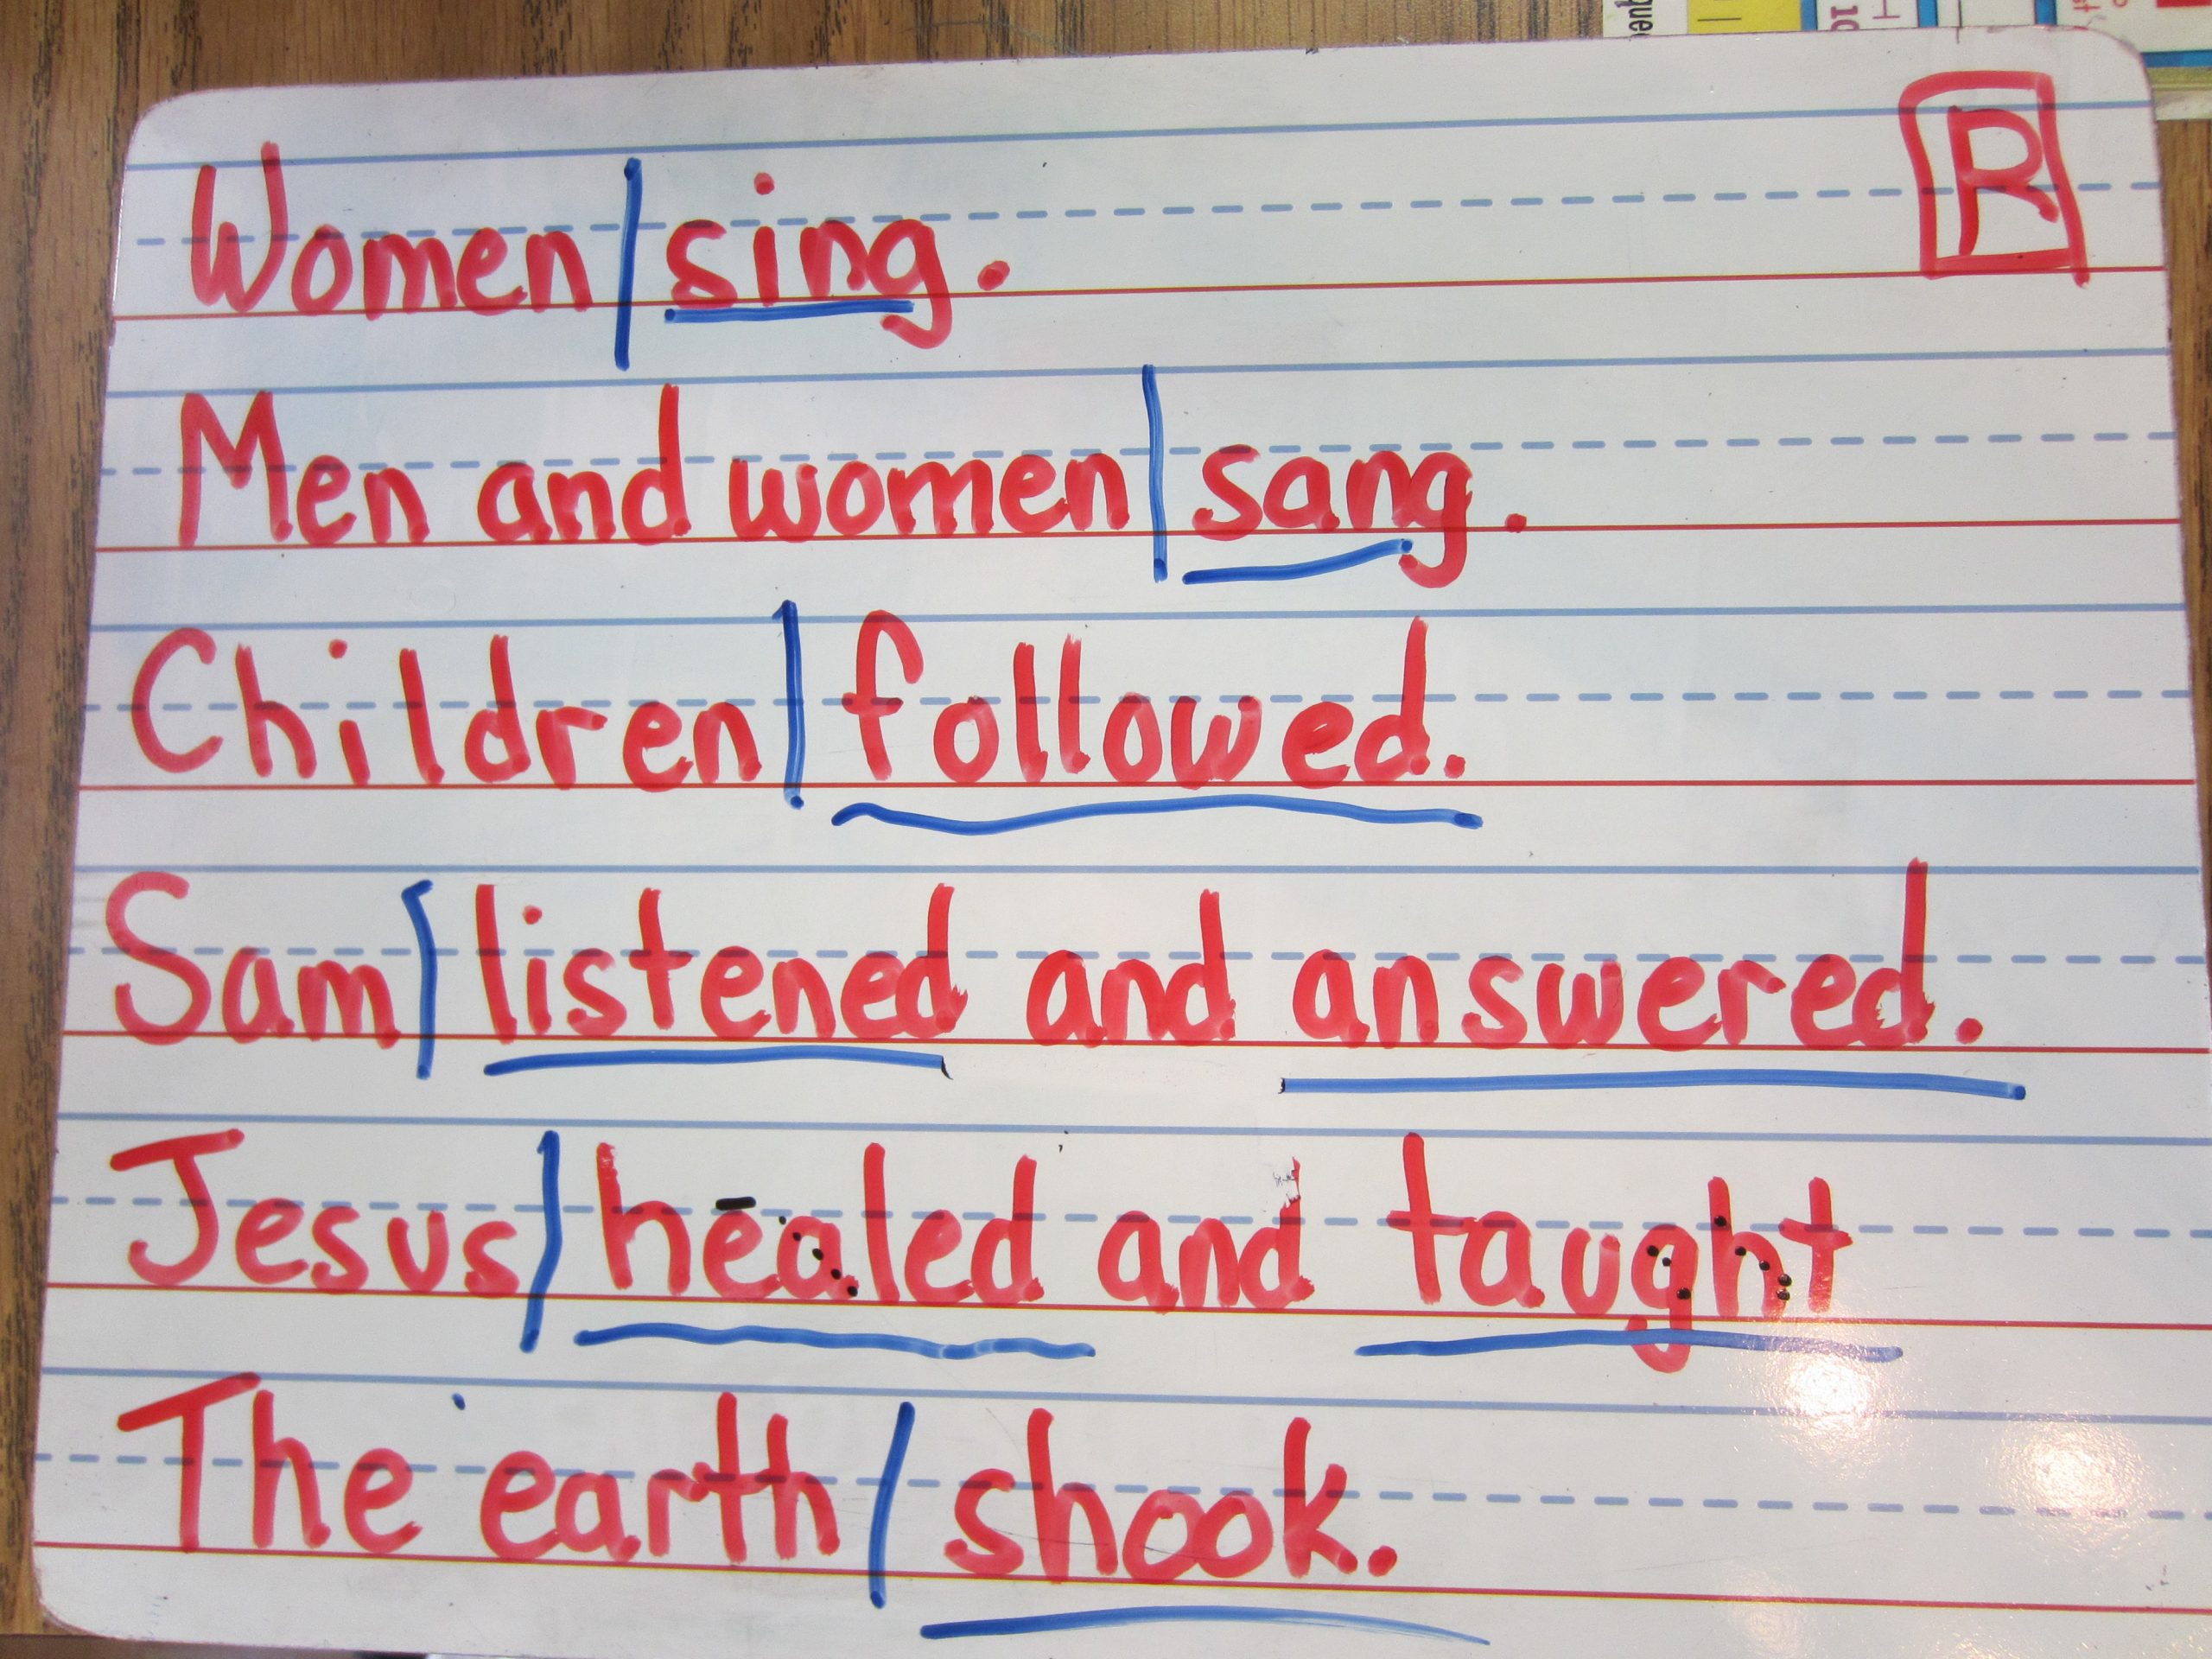 R
Women | sing.
Men and women | sang.
Children | followed.
Sam | listened and answered.
Jesus | healed and taught
The earth | shook.